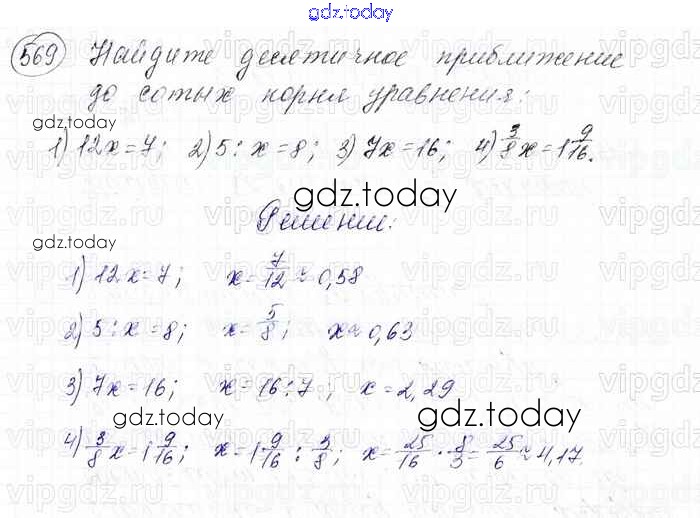 gdz.today
569 Найдите десятичное приближение
до сотых корня уравнения:
gdz.today
1) 12x = 7; 2) 5 : x = 8; 3) 7x = 16; 4) 3/8 x = 1 9/16.
gdz.today
Решение:
gdz.today
1) 12x = 7; x = 7/12 ≈ 0,58
2) 5 : x = 8; x = 5/8; x ≈ 0,63
3) 7x = 16; x = 16 : 7; x = 2,29
gdz.today
gdz.today
4) 3/8 x = 1 9/16; x = 1 9/16 : 3/8; x = 25/16 · 8/3 = 25/6 ≈ 4,17.